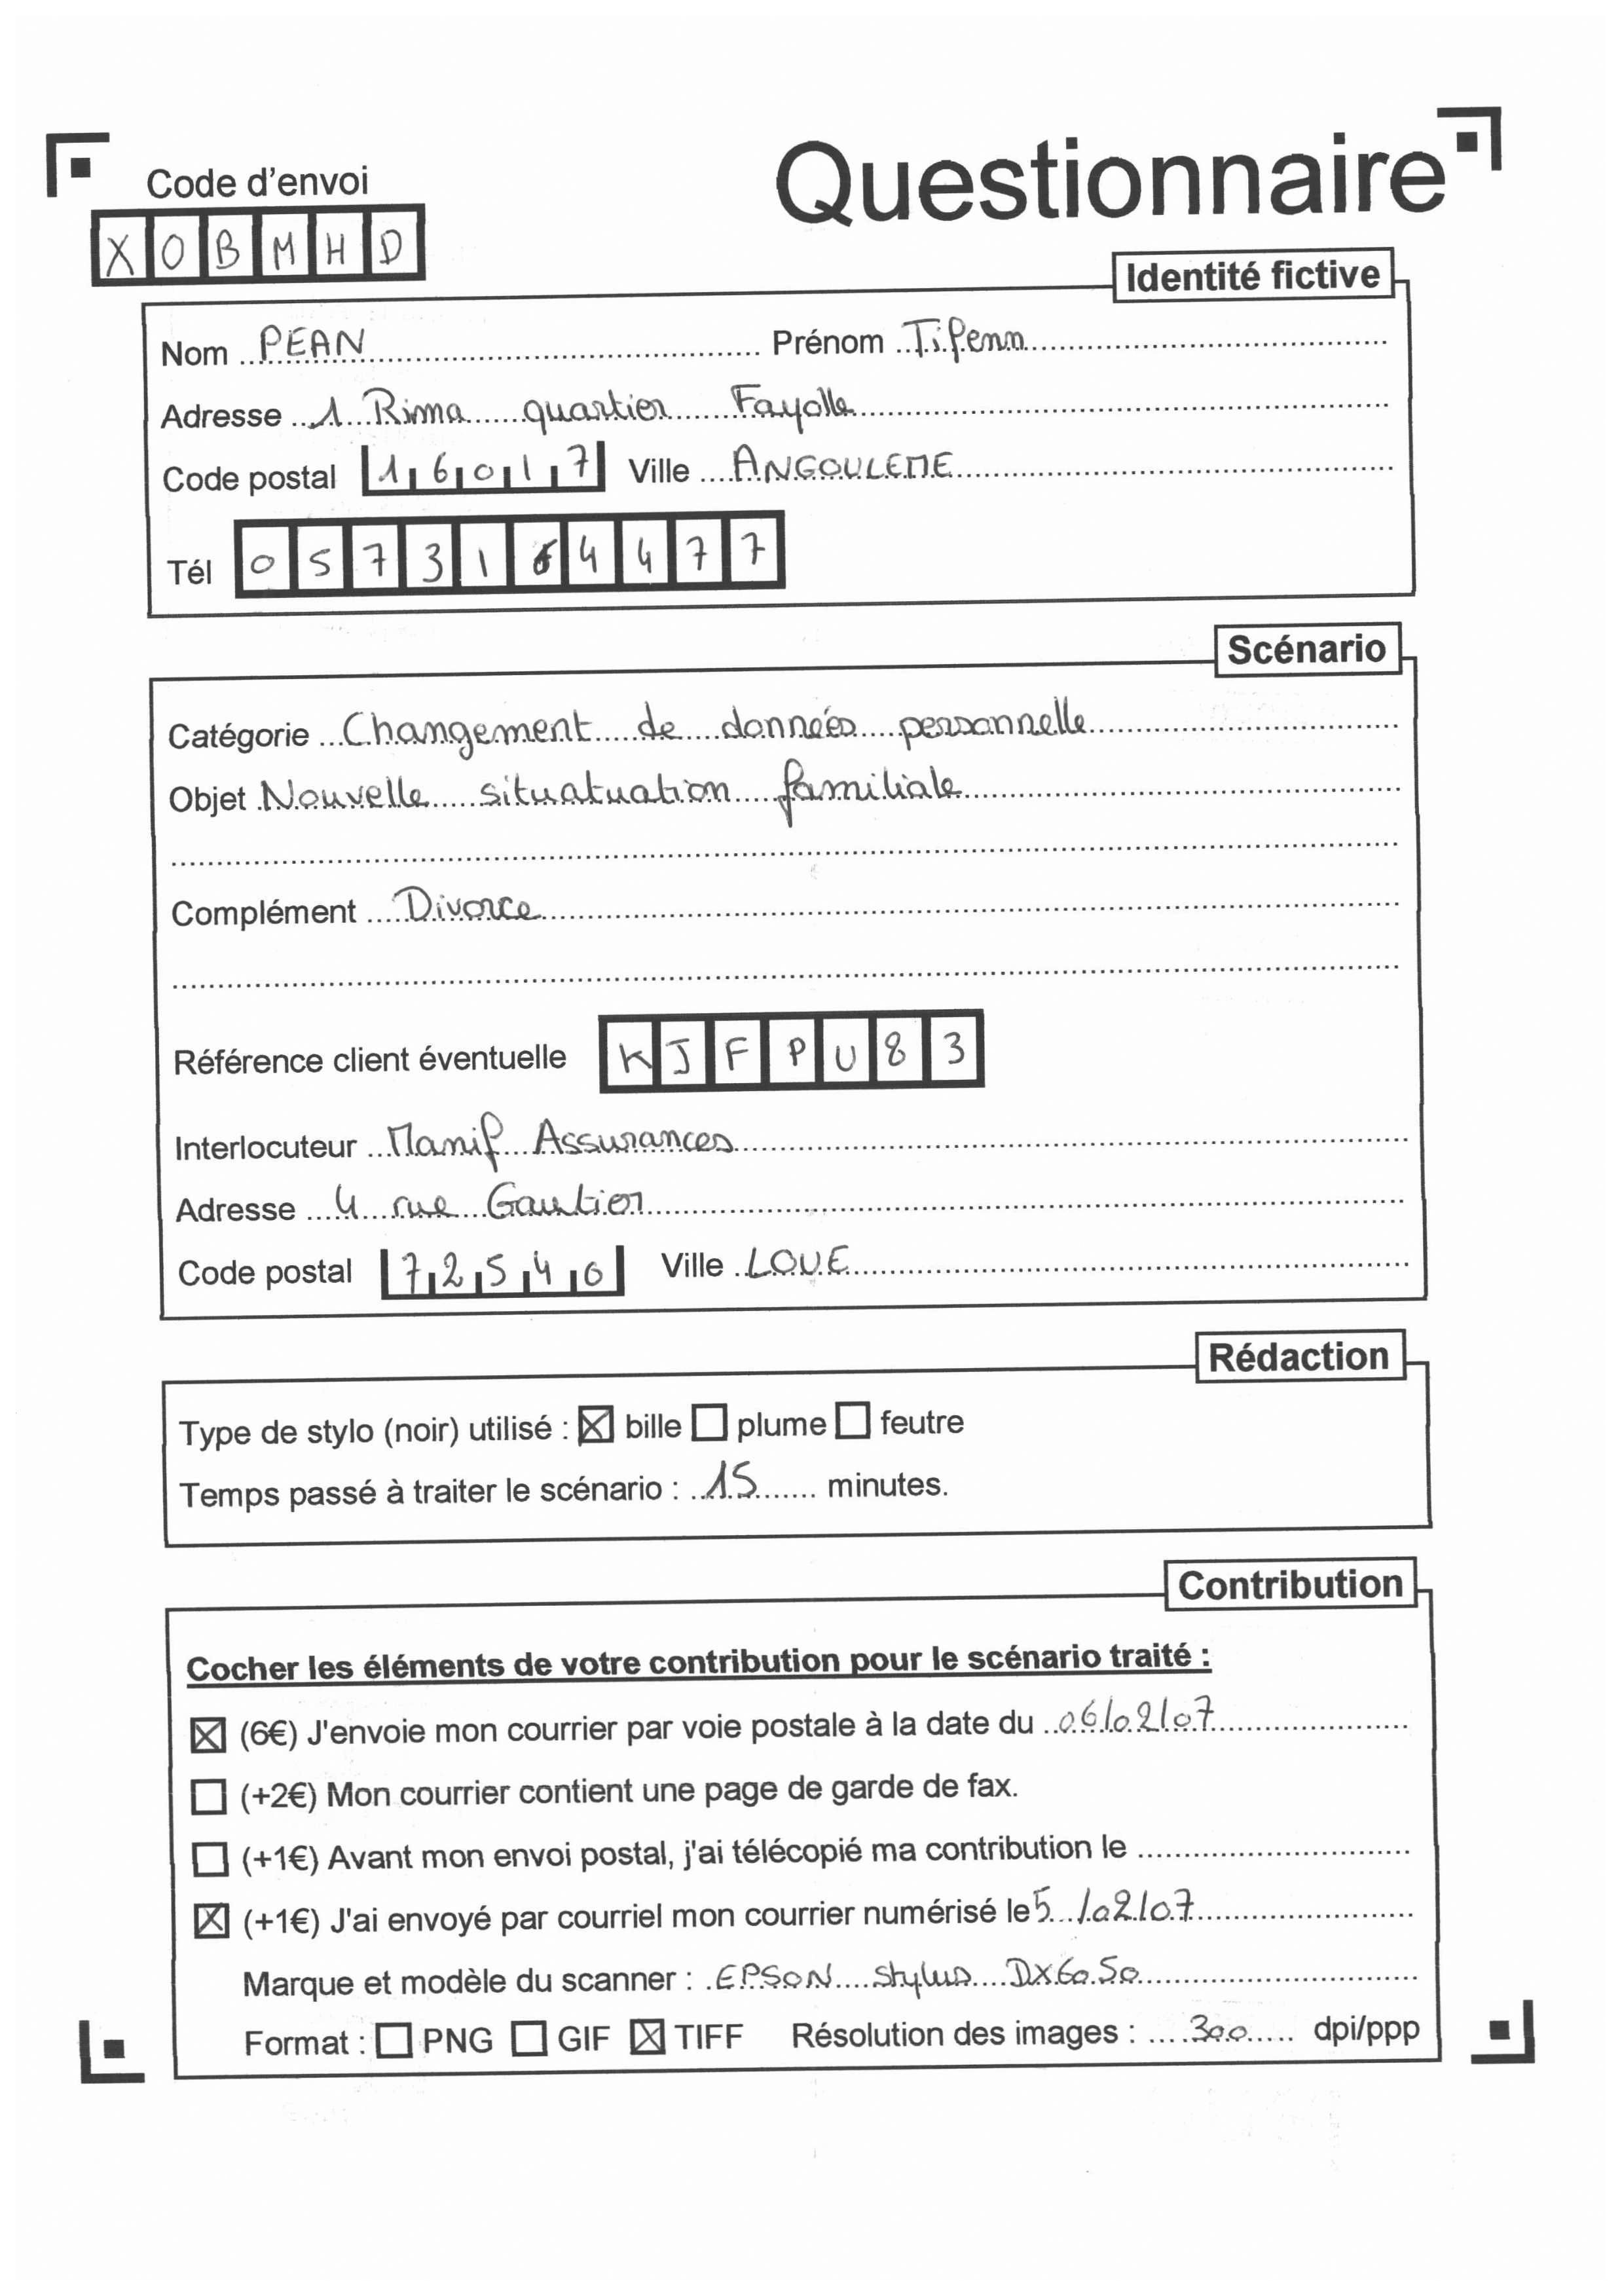 Questionnaire
Code d'envoi
XOBMHD
Identité fictive
Nom PEAN Prénom Tifenn
Adresse 1 Rima quartier Fayolle
Code postal 16017 Ville ANGOULEME
Tél 0573164477
Scénario
Catégorie Changement de données personnelle
Objet Nouvelle situatuation familiale
Complément Divorce
Référence client éventuelle KJFPU83
Interlocuteur Manif Assurances
Adresse 4 rue Gautier
Code postal 72540 Ville LOUE
Rédaction
Type de stylo (noir) utilisé : ☒ bille ☐ plume ☐ feutre
Temps passé à traiter le scénario : 15 minutes.
Contribution
Cocher les éléments de votre contribution pour le scénario traité :
☒ (6€) J'envoie mon courrier par voie postale à la date du 06/02/07
☐ (+2€) Mon courrier contient une page de garde de fax.
☐ (+1€) Avant mon envoi postal, j'ai télécopié ma contribution le
☒ (+1€) J'ai envoyé par courriel mon courrier numérisé le 5/02/07
Marque et modèle du scanner : EPSON Stylus DX6050
Format : ☐ PNG ☐ GIF ☒ TIFF Résolution des images : 300 dpi/ppp